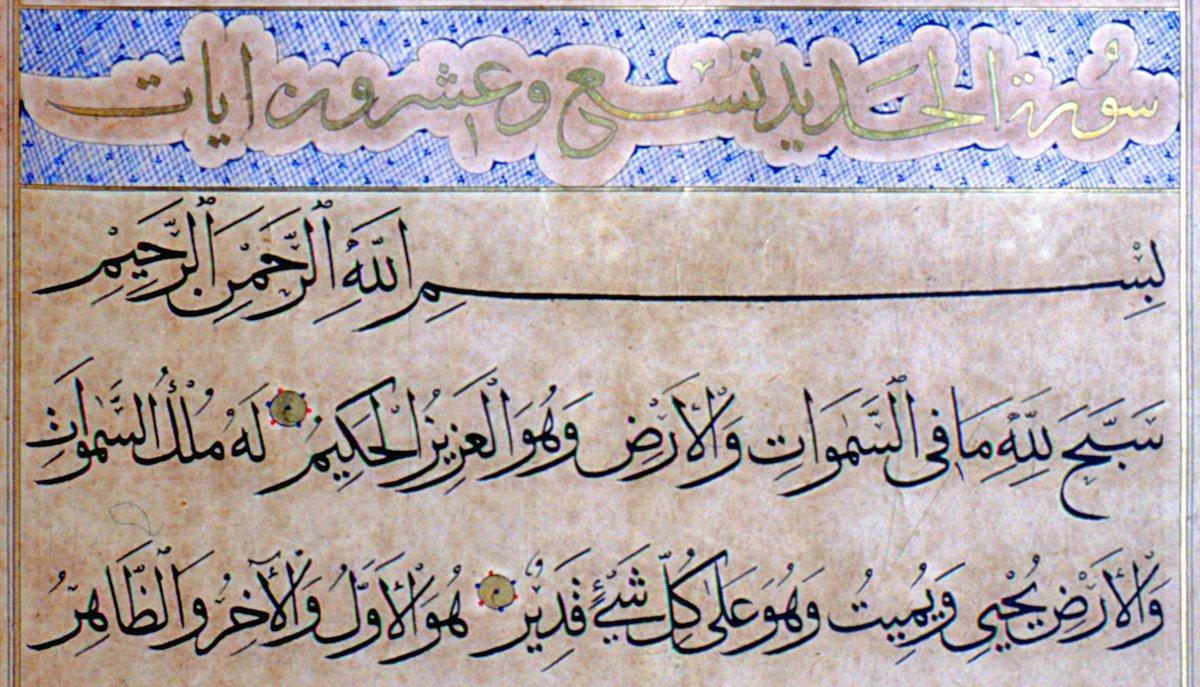 سورة الحديد تسع وعشرون ايات
بِسْمِ اللَّهِ الرَّحْمَنِ الرَّحِيمِ
سَبَّحَ لِلَّهِ مَا فِى السَّمٰوَاتِ وَالْأَرْضِ وَهُوَ الْعَزِيزُ الْحَكِيمُ لَهُ مُلْكُ السَّمٰوَاتِ
وَالْأَرْضِ يُحْيِى وَيُمِيتُ وَهُوَ عَلَىٰ كُلِّ شَيْءٍ قَدِيرٌ هُوَ الْأَوَّلُ وَالْآخِرُ وَالظَّاهِرُ